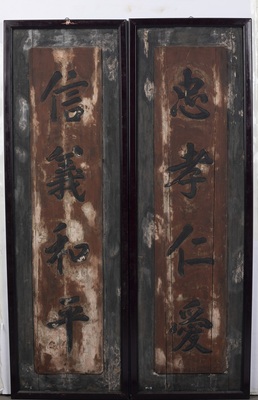 忠孝仁愛
信義和平